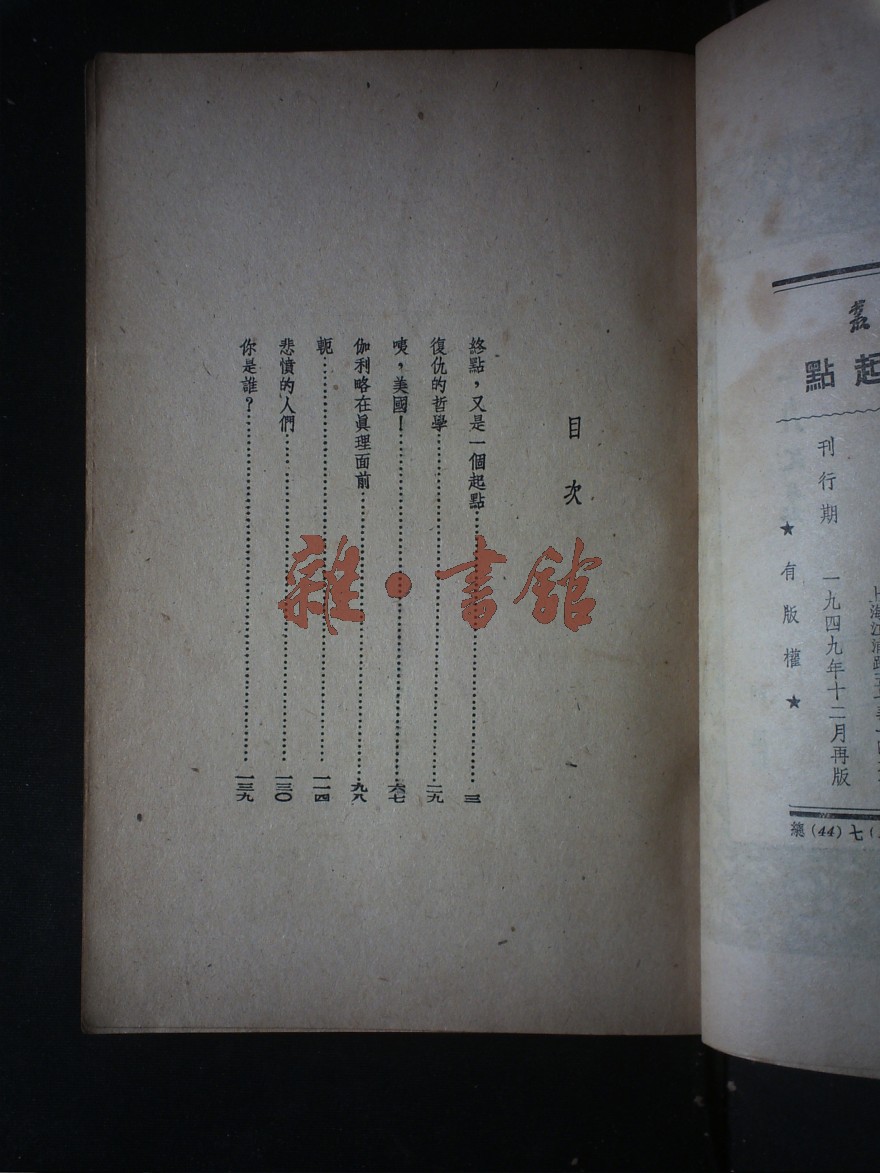 點起
刊行期　一九四九年十二月再版
★有版權★
總(44)七(
目次
終點，又是一個起點……三
復仇的哲學……二九
咦，美國！……六七
伽利略在眞理面前……九八
軛……一一四
悲憤的人們……一三〇
你是誰？……一三九
雜·書舘